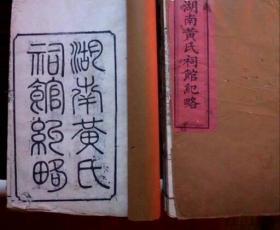 湖南黄氏
祠館紀略
湖南黃氏祠館紀略